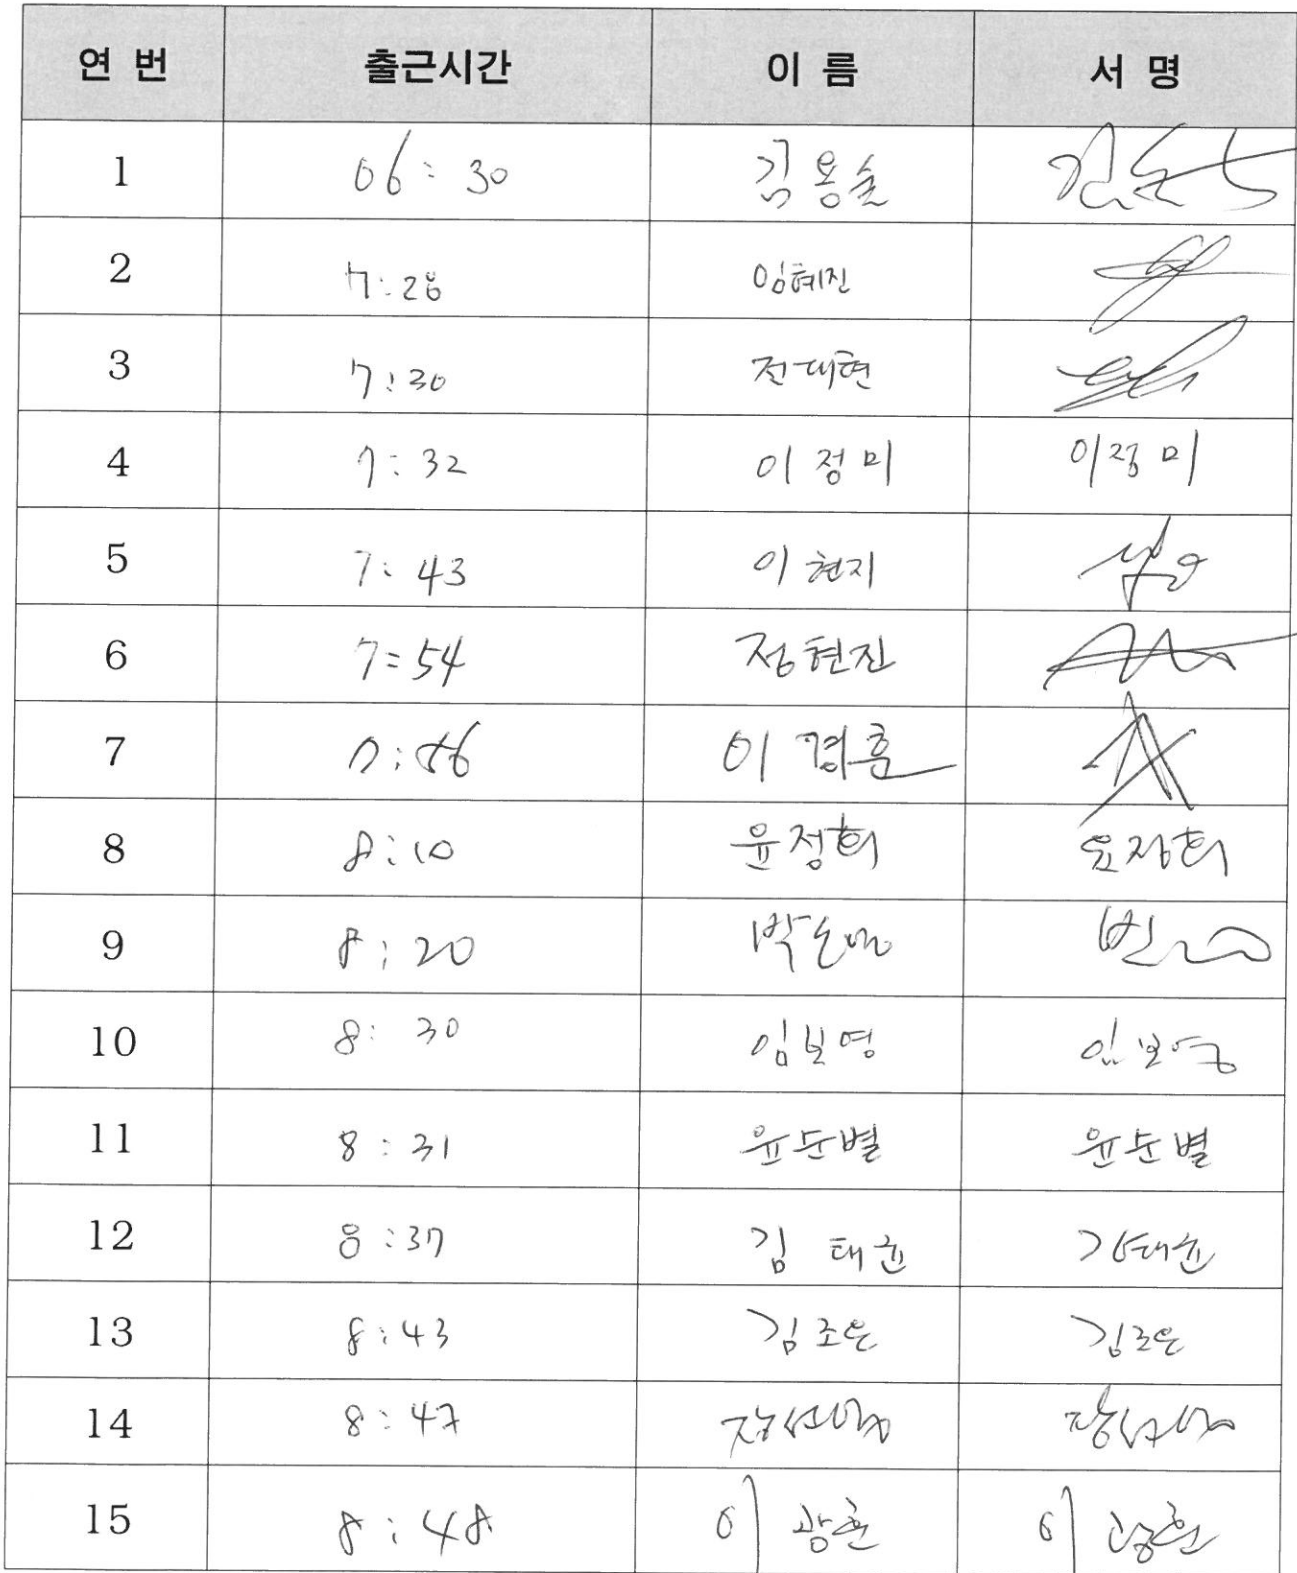 연 번 출근시간 이 름 서 명
1 06:30 김용슬
2 7:28 임혜진
3 7:30 전대현
4 7:32 이정미 이정미
5 7:43 이현지
6 7:54 정현진
7 7:56 이경훈
8 8:10 윤정희 윤정희
9 8:20
10 8:30 임보영 임보영
11 8:31 윤든별 윤든별
12 8:37 김태윤 김태윤
13 8:43 김조은 김조은
14 8:47
15 8:48 이광훈 이광훈